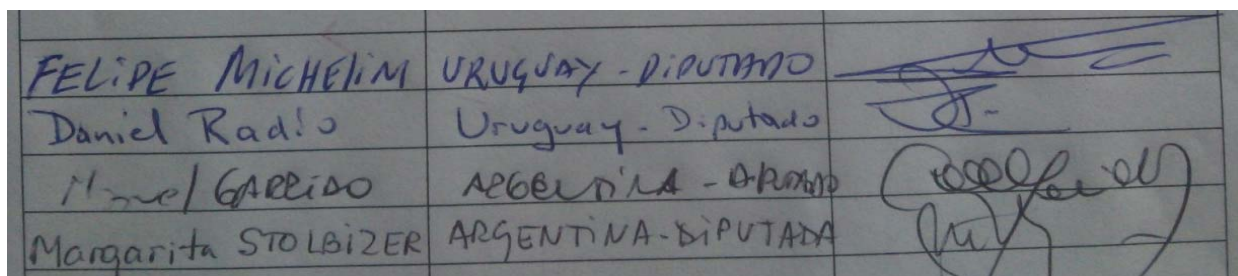 FELIPE MICHELINI URUGUAY - DIPUTADO
Daniel Radio Uruguay - Diputado
Manuel GARRIDO ARGENTINA - DIPUTADO
Margarita STOLBIZER ARGENTINA - DIPUTADA